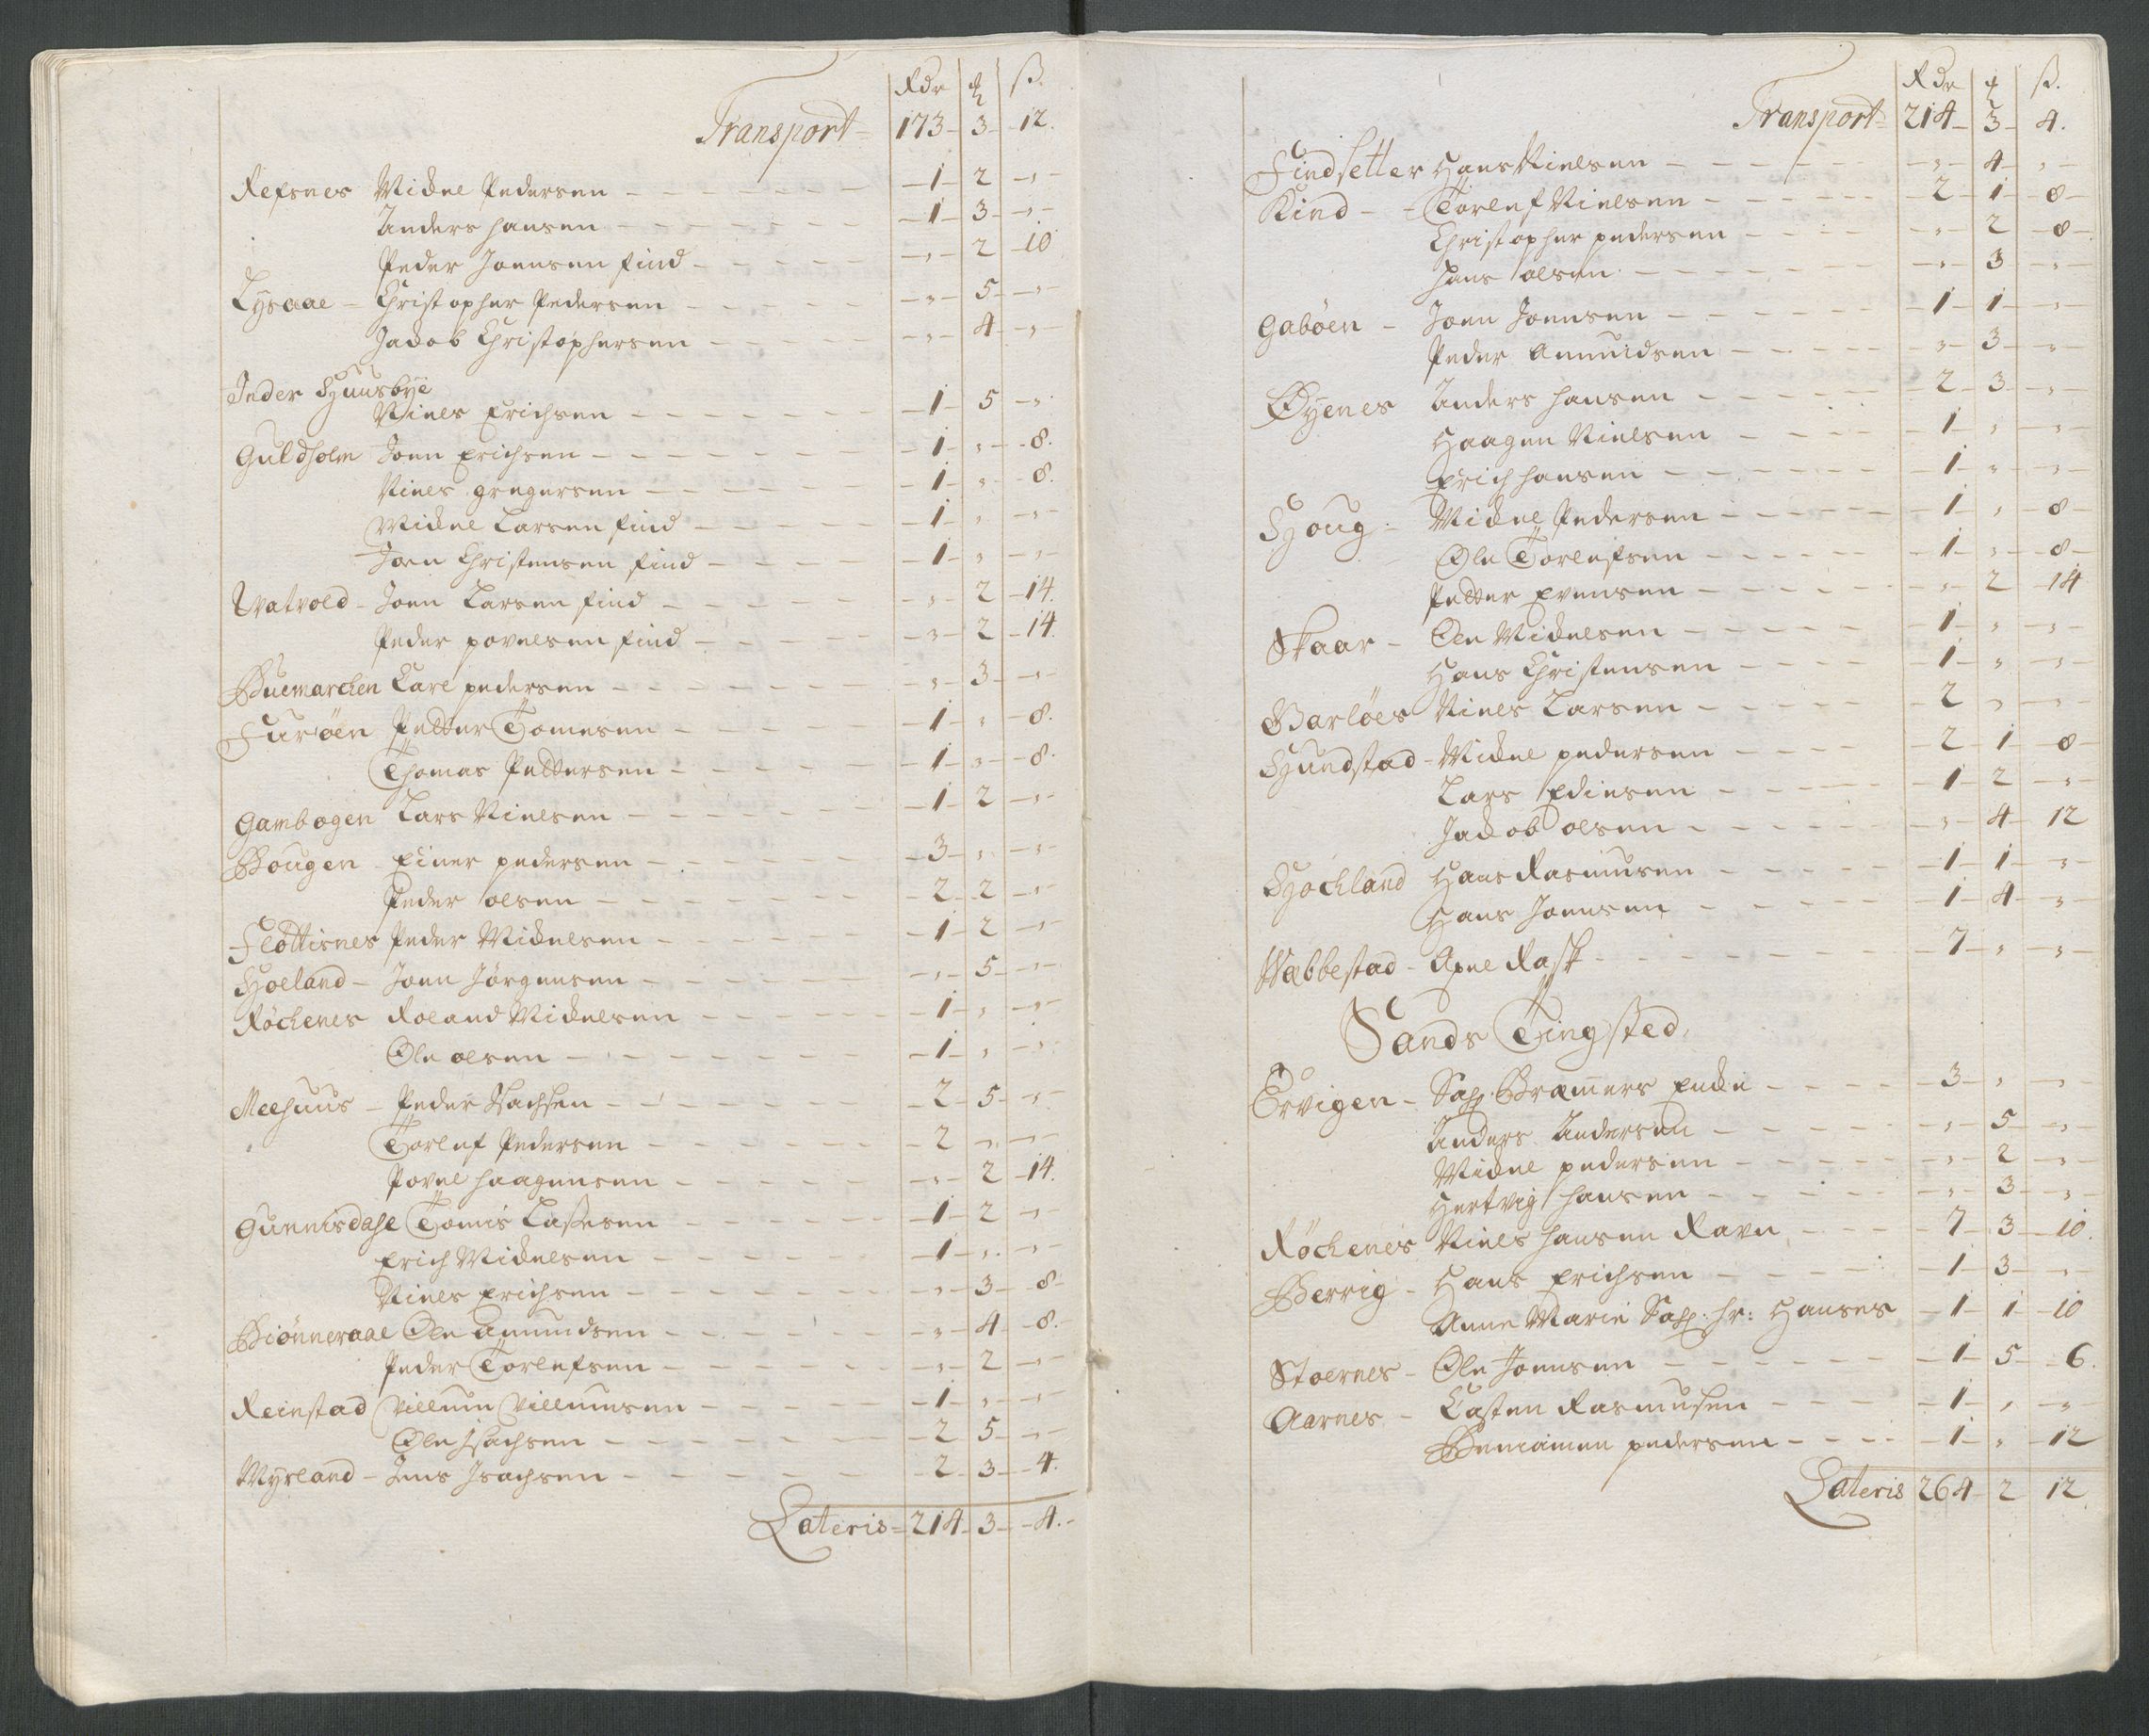 Rdr ꝗ ß.
Transport 173 - 3 - 12.
Refsnes Mickel Pedersen - 1 - 2 - "
Anders hansen - 1 - 3 - "
Peder Joensen find - " - 2 - 10
Lysaae - Christopher Pedersen - " - 5 - "
Jacob Christophersen - " - 4 - "
Inder Huusbye
Niels Erichsen - 1 - 5 - "
Guldholm Joen Erichsen - 1 - " - 8.
Niels gregersen - 1 - " - 8.
Mickel Larsen find - 1 - " - "
Joen Christensen find - 1 - " - "
Watvold - Joen Larsen find - " - 2 - 14.
Peder povelsen find - " - 2 - 14.
Buemarchen Carl pedersen - " - 3 - "
Furöen Petter Tomesen - 1 - " - 8.
Thomas Pettersen - 1 - " - 8.
Gambogen Lars Nielsen - 1 - 2 - "
Bougen Einer pedersen - 3 - " - "
Peder olsen - 2 - 2 - "
Flottisnes Peder Mickelsen - 1 - 2 - "
Hoeland - Joen Jørgensen - " - 5 - "
Røchenes Roland Mickelsen - 1 - " - "
Ole olsen - 1 - " - "
Meehuus - Peder Isachsen - 2 - 5 - "
Torlef Pedersen - 2 - " - "
Povel haagensen - " - 2 - 14.
Gunnisdahl Tomis Lassesen - 1 - 2 - "
Erich Mickelsen - 1 - " - "
Niels Erichsen - " - 3 - 8
Biönneraae Ole Amundsen - " - 4 - 8.
Peder Torlefsen - " - 2 - "
Reinstad Villum Villumsen - 1 - " - "
Ole Isachsen - 2 - 5 - "
Myrland - Jens Isachsen - 2 - 3 - 4.
Lateris = 214 - 3 - 4.
Rdr ꝗ ß.
Transport 214 - 3 - 4.
Findsetter Hans Nielsen - " - 4 - "
Kind - Torlef Nielsen - 2 - 1 - 8
Christopher pedersen - " - 2 - 8
Hans olsen - " - 3 - "
Gaböen - Joen Joensen - 1 - 1 - "
Peder Amundsen - " - 3 - "
Øyenes Anders hansen - 2 - 3 - "
Haagen Nielsen - 1 - " - "
Erich hansen - 1 - " - "
Houg - Mickel Pedersen - 1 - " - 8
Ole Torlefsen - 1 - " - 8
Petter Evensen - " - 2 - 14
Skaar - Ole Mickelsen - 1 - " - "
Hans Christensen - 1 - " - "
Barlöes Niels Larsen - 2 - " - "
Hundstad - Mickel pedersen - 2 - 1 - 8
Lars Ediesen - 1 - 2 - "
Jacob olsen - " - 4 - 12
Hochland Hans Rasmusen - 1 - 1 - "
Hans Joensen - 1 - 4 - "
Wæbbestad - Axel Rask - 7 - " - "
Sands Tingsted
Ervigen - Sah: Bræmers Encke - 3 - " - "
Anders Andersen - " - 5 - "
Mickel pedersen - " - 2 - "
Hertvig hansen - " - 3 - "
Röchenes Niels hansen Ravn - 7 - 3 - 10.
Berrig - Hans Erichsen - 1 - 3 - "
Anne Marie Sah: hr: Hanses - 1 - 1 - 10
Stoernes - Ole Joensen - 1 - 5 - 6.
Aarnes - Casten Rasmusen - 1 - " - "
Beniamen pedersen - 1 - " - 12
Lateris 264 - 2 - 12